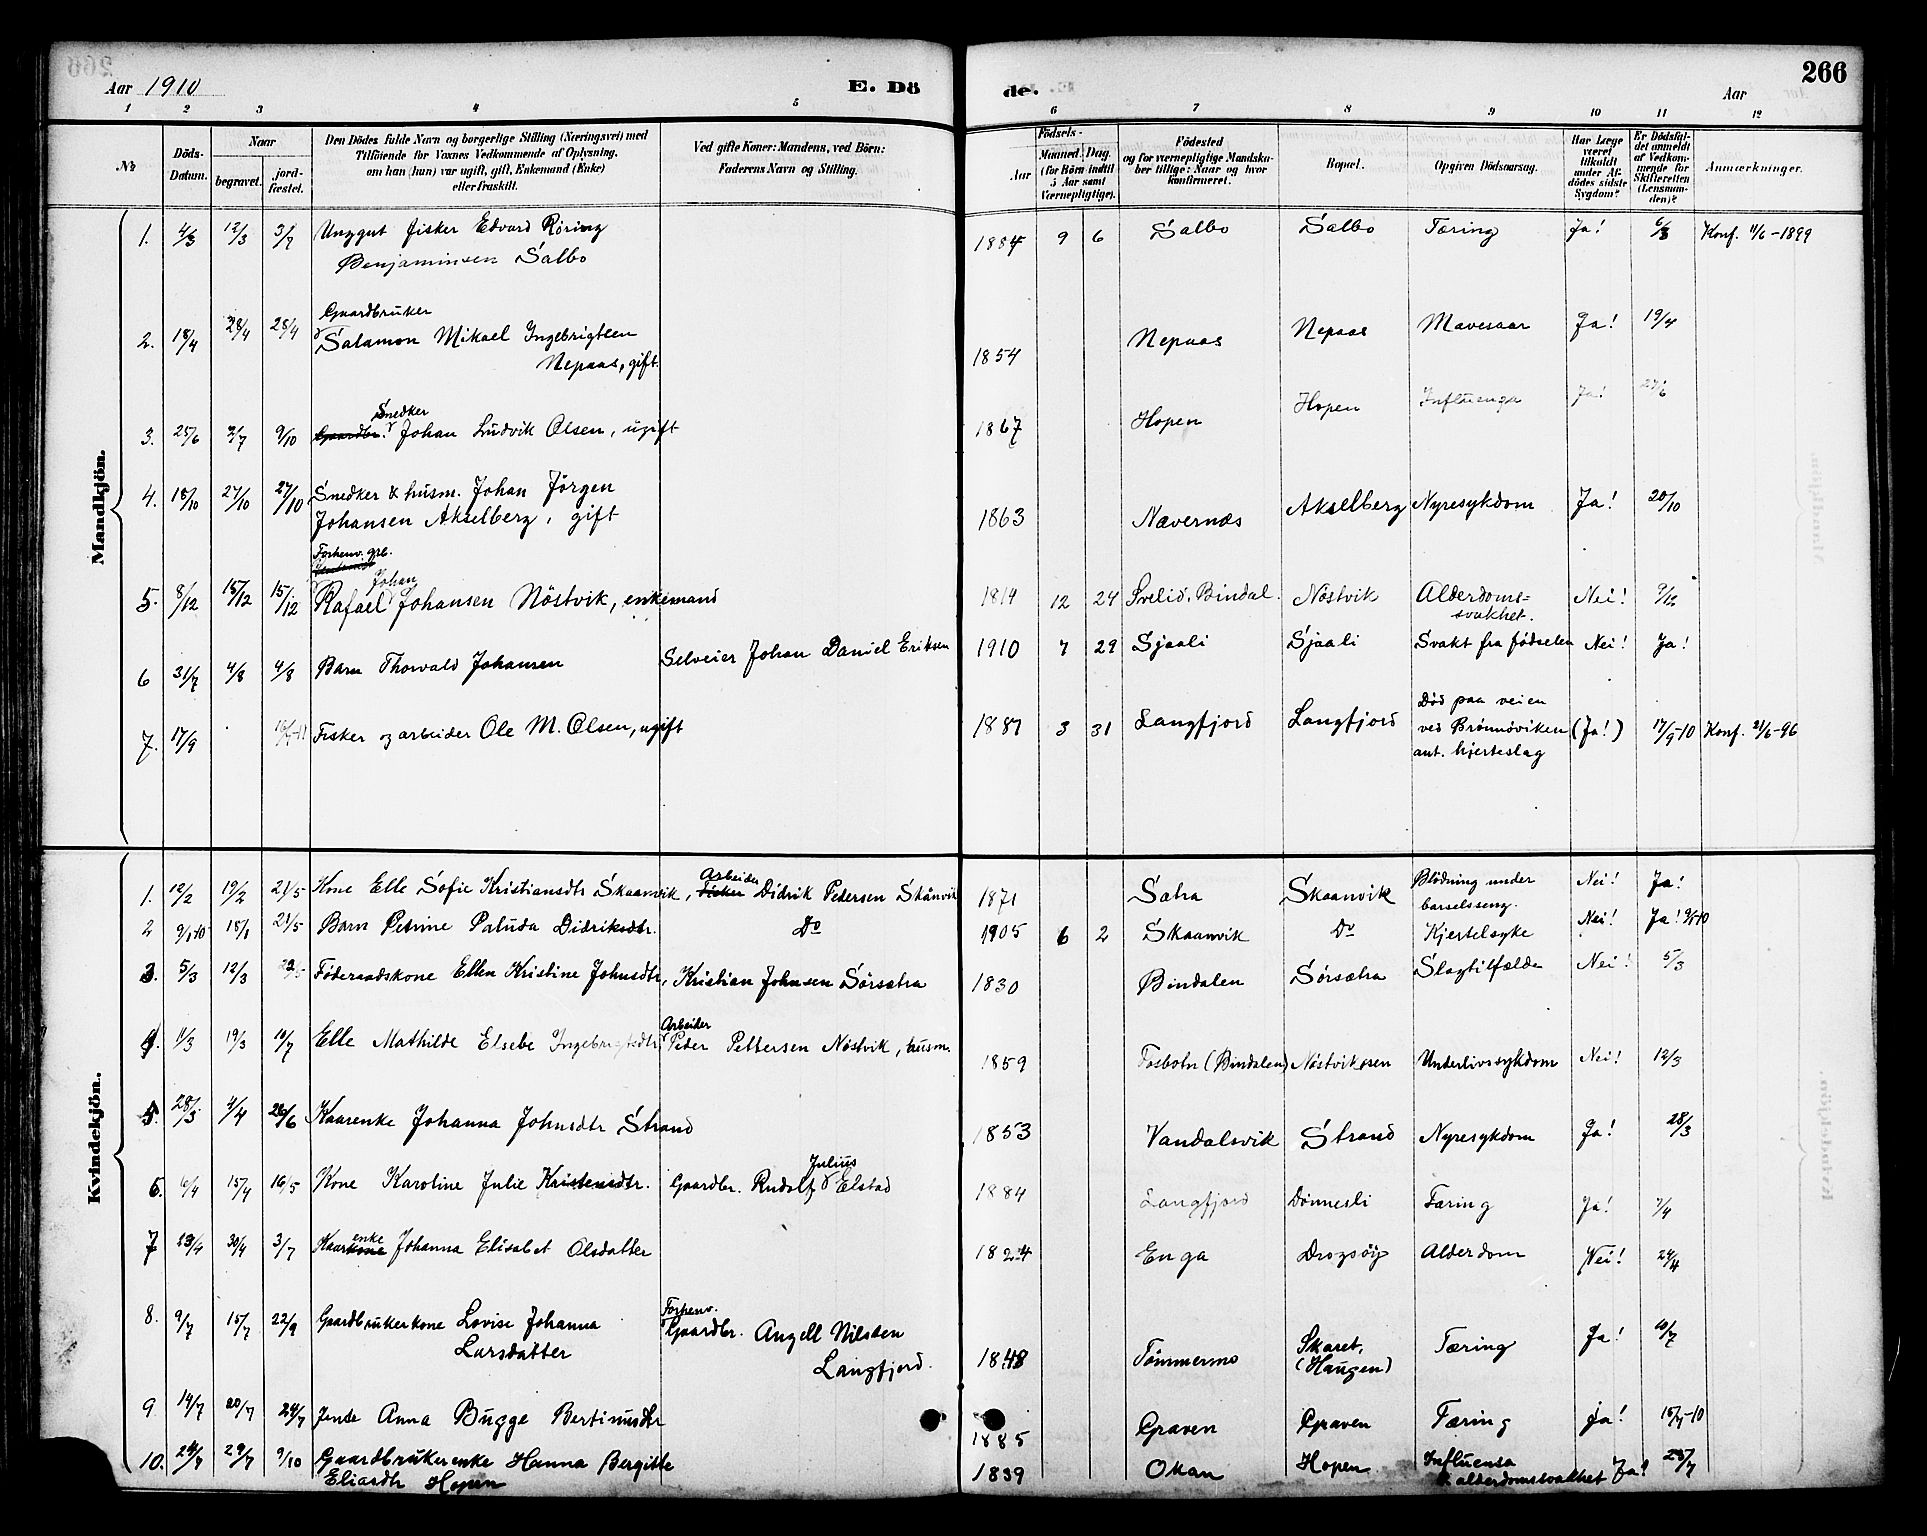 266
Aar 1910
E. Dö
de.
Aar
1 2 3 4 5 6 7 8 9 10 11 12
No
Döds-Datum.
Naar
begravet.
jord-fæstet.
Den Dödes fulde Navn og borgerlige Stilling (Næringsvei) med
Tilföiende for Voxnes Vedkommende af Oplysning,
om han (hun) var ugift, gift, Enkemand (Enke)
eller fraskilt.
Ved gifte Koner: Mandens, ved Börn:
Faderens Navn og Stilling.
Födsels-
Aar
Maaned. Dag.
(for Börn indtil
5 Aar samt
Værnepligtige).
Födested
og for værnepligtige Mandska-
ber tillige: Naar og hvor
konfirmeret.
Bopæl.
Opgiven Dödsaarsag.
Har Læge
været
tilkaldt
under Af-
dödes sidste
Sygdom?
Er Dödsfal-
det anmeldt
af Vedkom-
mende for
Skifteretten
(Lensman-
den)?
Anmærkninger.
Mandkjön.
1. 4/3 12/3 3/7 Unggut fisker Edvard Röring 1884 9 6 Salbo Salbo Tæring Ja! 6/3 Konf. 11/6-1899
Benjaminsen Salbo
Gaardbruker
2. 18/4 28/4 28/4 Salamon Mikael Ingebrigtsen 1854 Nepaas Nepaas Mavesaar Ja! 19/4
Nepaas, gift.
Snedker
3. 25/6 2/7 9/10 Gaardbr. Johan Ludvik Olsen, ugift 1867 Hopen Hopen Influenza Ja! 27/6
4. 18/10 27/10 27/10 Snedker & husm. Johan Jörgen 1863 Nævernæs Akselberg Nyresykdom Ja! 20/10
Johansen Akselberg, gift
Forhenv. grb.
Johan
5. 8/12 15/12 15/12 Rafael Johansen Nöstvik, enkemand 1819 12 24 Svelid, Bindal. Nöstvik Alderdoms= Nei! 9/12
svakhet.
6 31/7 4/8 4/8 Barn Thorvald Johansen Selveier Johan Daniel Eriksen 1910 7 29 Sjaali Sjaali Svakt fra födselen Nei! Ja!
Död paa veien
7. 17/9 Fisker og arbeider Ole M. Olsen, ugift 1881 3 31 Langfjord Langfjord ved Brönnöviken (Ja!) 17/9-10 Konf. 21/6-96
ant. hjerteslag
Kvindekjön.
Arbeider
1. 12/2 19/2 21/5 Kone Elle Sofie Kristiansdtr Skaanvik, Fisker Didrik Pedersen Skånvik 1871 Satra Skaanvik Blödning under Nei! Ja!
barselsseng.
2 9/1-10 18/1 21/5 Barn Petrine Paluda Didriksdtr. Do 1905 6 2 Skaanvik Do Kjertelsyke Nei! Ja! 9/1-10
3. 5/3 12/3 Föderaadskone Ellen Kristine Johnsdtr, Kristian Johnsen Sörsatra 1830 Bindalen Sörsatra Slagtilfælde Nei! 5/3
Arbeider
4. 11/3 19/3 10/7 Elle Mathilde Elsebe Ingebrigtsdtr Peder Pettersen Nöstvik, husm. 1859 Fosbotn (Bindalen) Nöstvikosen Underlivssykdom Nei! 12/3
5. 28/3 4/4 26/6 Kaarenke Johanna Johnsdtr Strand 1853 Vandalsvik Strand Nyresykdom Ja! 28/3
Julius
6. 6/4 15/4 16/5 Kone Karoline Julie Kristensdtr. Gaardbr. Rudolf Elstad 1884 Langfjord Dönnesli Tæring Ja! 7/4
enke
7 23/4 30/4 3/7 Kaarkone Johanna Elisabet Olsdatter 1824 Enga Drogsöy Alderdom Nei! 24/4
Forhenv.
8. 9/7 15/7 22/9 Gaardbrukerkone Lovise Johanna Gaardbr. Angell Nilssen 1848 Tömmermo Skaret, Tæring Ja! 10/7
Larsdatter Langfjord. (Haugen)
9 14/7 20/7 24/7 Jente Anna Bugge Bertinusdtr 1885 Graven Graven Tæring Ja! 15/7-10
10. 24/7 29/7 9/10 Gaardbrukerenke Hanna Bergitte 1839 Okan Hopen Influensa 25/7
Eliasdtr Hopen & alderdomssvakhet Ja!